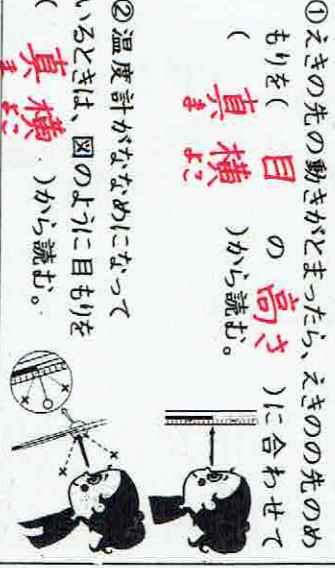 ①えきの先の動きがとまったら、えきの先のめ
もりを( 目 の 高さ )に合わせて
( 真横 )から読む。
まよこ
②温度計がななめになって
いるときは、図のように目もりを
( 真横 )から読む。
まよこ